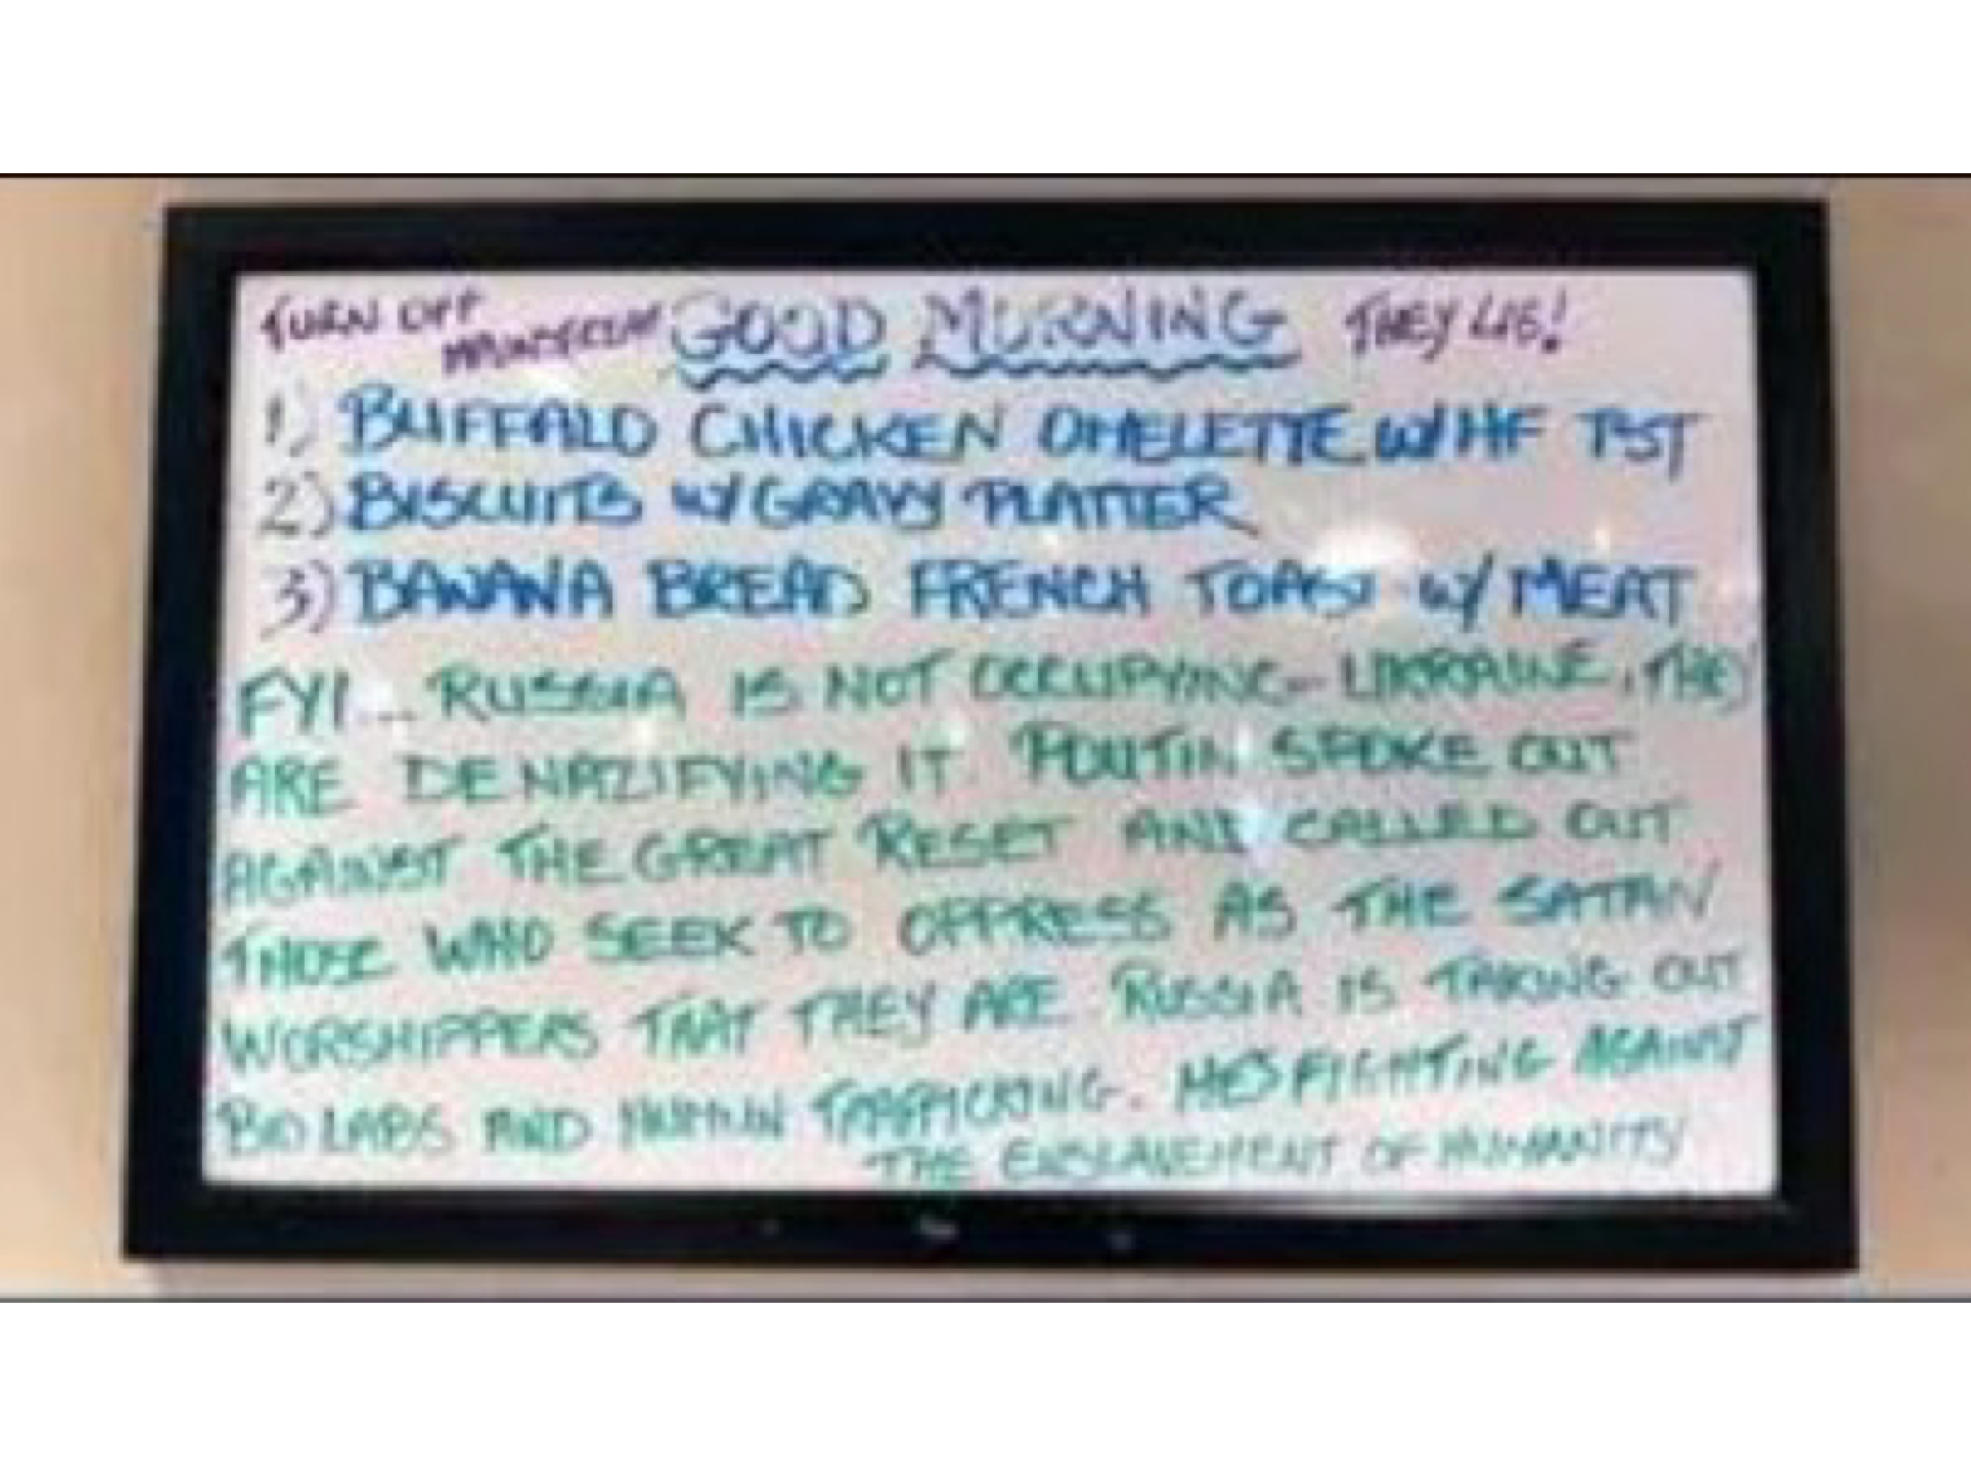 TURN OFF GOOD MORNING THEY LIE!
MAINSTREAM
1) BUFFALO CHICKEN OMELETTE W/HF TST
2) BISCUITS W/GRAVY PLATTER
3) BANANA BREAD FRENCH TOAST W/ MEAT
FYI... RUSSIA IS NOT OCCUPYING UKRAINE, THEY
ARE DENAZIFYING IT. POUTIN SPOKE OUT
AGAINST THE GREAT RESET AND CALLED OUT
THOSE WHO SEEK TO OPPRESS AS THE SATAN
WORSHIPPERS THAT THEY ARE RUSSIA IS TAKING OUT
BIO LABS AND HUMAN TRAFFICKING. HE'S FIGHTING AGAINST
THE ENSLAVEMENT OF HUMANITY